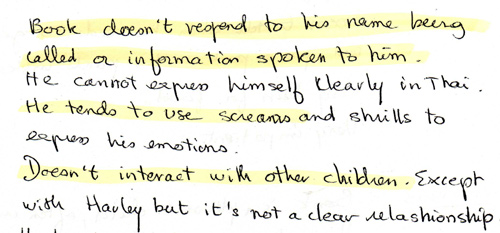 Book doesn't respond to his name being
called or information spoken to him.
He cannot express himself klearly in Thai.
He tends to use screams and shrills to
express his emotions.
Doesn't interact with other children. Except
with Harley but it's not a clear relashionship